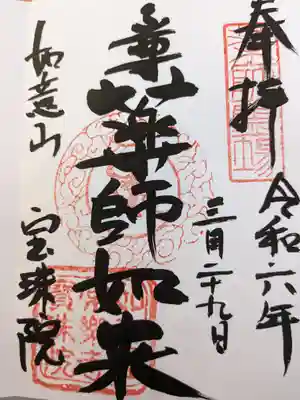 奉拝
令和六年
三月二十九日
薬師如来
如意山
宝珠院